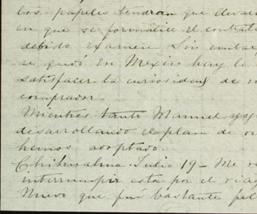 los papeles tendran que
en que se formalice el contrato
debido examen. Sin embar
se quedó en Mexico hay la
satisfacer la curiosidad de
comprador.
Mientras tanto Manuel
desarrollando el plan de
hemos adoptado.
Chihuahua Julio 19 - Me vi
interrumpir esta por el viaje
Nuevo que fué bastante fel